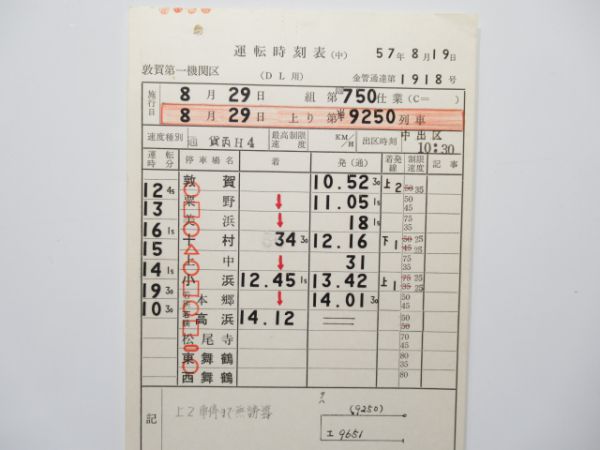 運転時刻表(中) 57年8月19日
敦賀第一機関区 (DL用) 金管通達第1918号
施行日 8月29日 組 第750仕業(C= )
8月29日 上り 第9250列車
速度種別 通貨AH4 最高制限速度 KM/H 出区時刻 中出区 10:30
運転時分 停車場名 着 発(通) 着発線 制限速度 記事
敦賀 10.52 30 上2 50 35
12 45 粟野 ↓ 11.05 15 50 45
13 美浜 ↓ 18 15 75 35
16 15 十村 34 30 12.16 下1 50 25 45 25
15 上中 ↓ 31 75 35
14 15 小浜 12.45 15 13.42 上1 75 25 35 25
19 30 本郷 ↓ 14.01 30 50 45
10 30 高浜 14.12 50 50
松尾寺 70 45
東舞鶴 80 35
西舞鶴 80
記
(9250)
エ9651